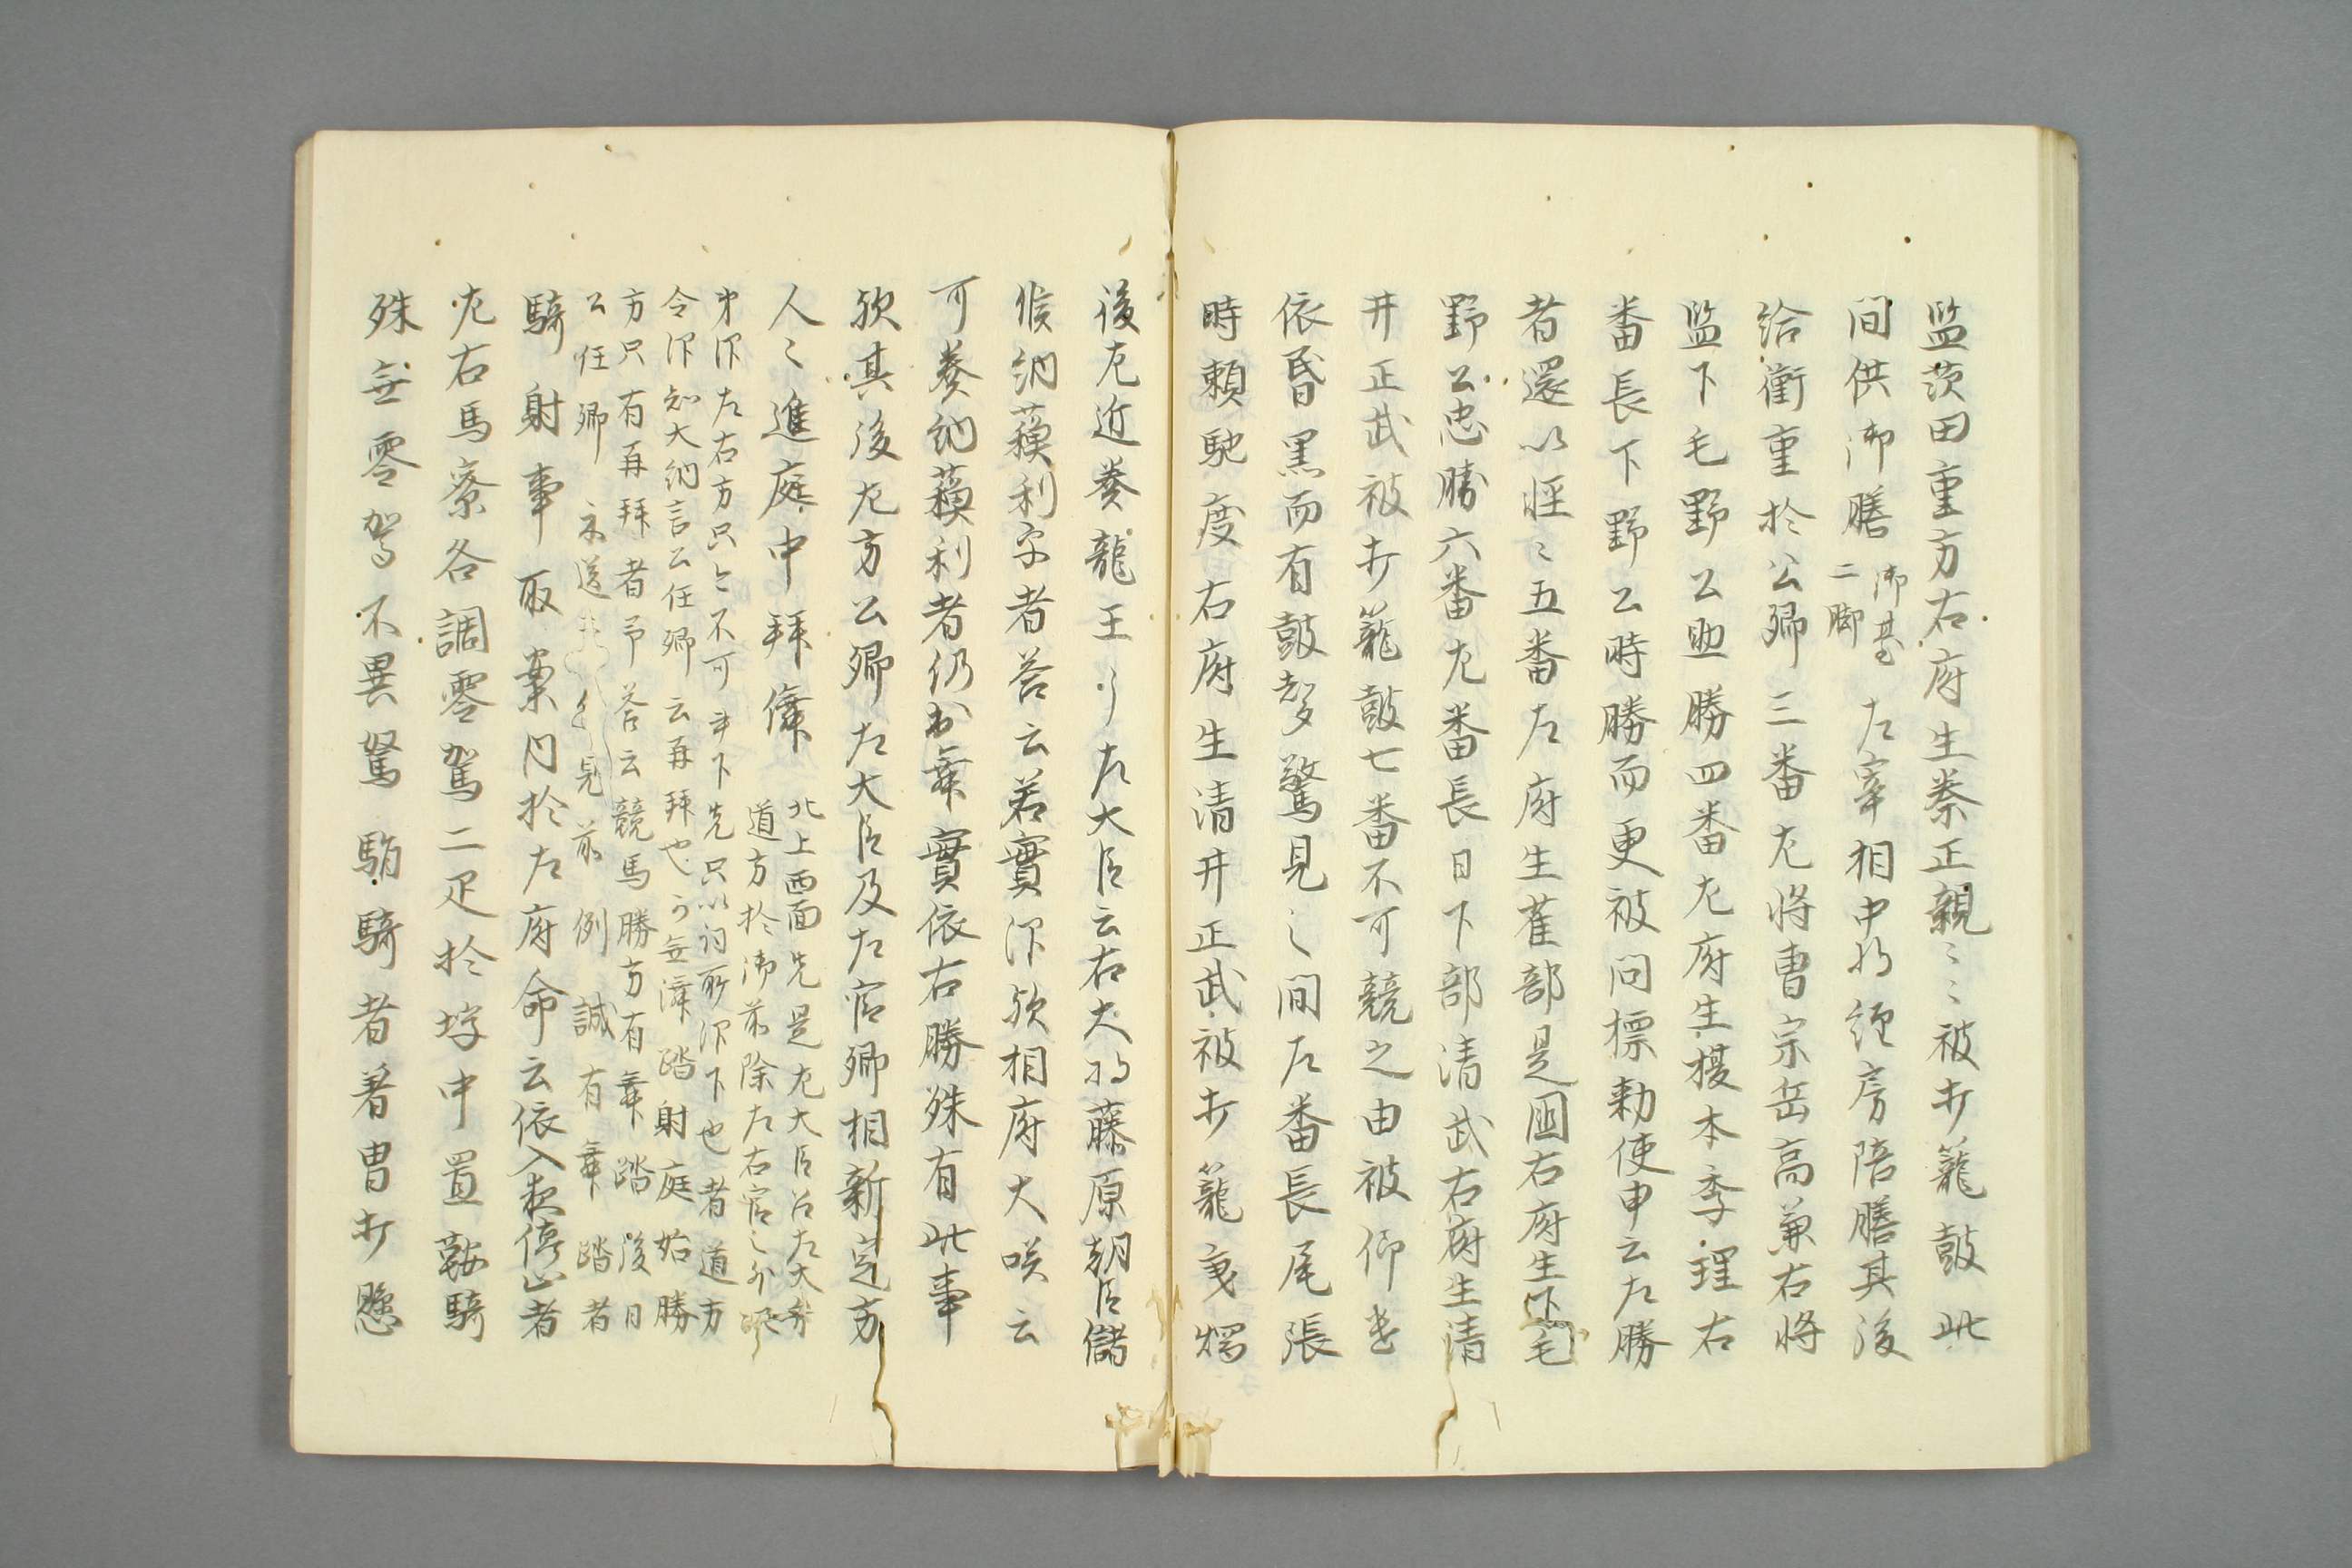 监茨田重方右府生秦正親〻〻被打籠鼓此
間供御膳御基二脚左宰相中将経房陪膳其後
給衝重於公卿三番左将曹宗岳高兼右将
监下毛野公助勝四番左府生榎本季理右
番長下野公時勝而更被問標勅使申云左勝
者還以恠〻五番左府生雀部是国右府生下毛
野公忠勝六番左番長日下部清武右府生清
井正武被打籠鼓七番不可競之由被仰
依昏黒而有鼓声驚見之間左番長尾張
時頼馳度右府生清井正武被打籠
後左近奏龍王了左大臣云右大将藤原朝臣儲
候納蘓利云者答云若實浮欤相府大咲云
可奏納蘓利者仍出舞實依右勝殊有此事
欤其後左方公卿左大臣及左宮卿相新定方
人〻進庭中拜舞北上西面先是左大臣召左大弁
道方於御前除左右宮之外
只左右方只〻不可下先只以詞所下也者道方
令知大納言公任卿云再拜也了無舞踏射庭始勝
方只有再拜者予答云競馬勝方有舞踏後日
公任卿示送見前例誠有舞踏者
騎射事取案内於左府命云依入夜停止者
左右馬寮各調零駕二疋於埒中置鞍騎
殊無零駕不異駑駘騎者着冑打懸